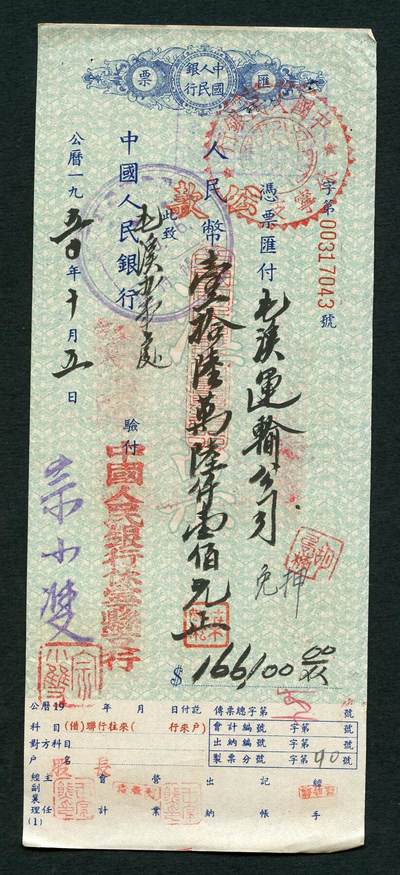 匯
中國人民銀行
票
字第00317043號
憑票匯付屯溪運輸公司
人民幣壹拾陸萬陸仟壹佰元正
此致
中國人民銀行屯溪
公曆一九五0年十月五日
驗付
中國人民銀行休寧縣支行
宗小雙
免押
$166100 00
公曆19 年 月 日付訖
傳票總字第 號
科目(借)聯行往來(來戶來行)
會計編號 字第 號
對方科目
出納編號 字第 號
戶名
製票分號 字第90號
經副襄理 主任
會計
營業
出納
記帳
經手
(1)